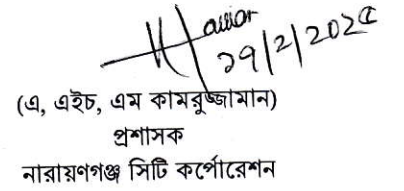 ২৭/2/202৫
(এ, এইচ, এম কামরুজ্জামান)
প্রশাসক
নারায়ণগঞ্জ সিটি কর্পোরেশন